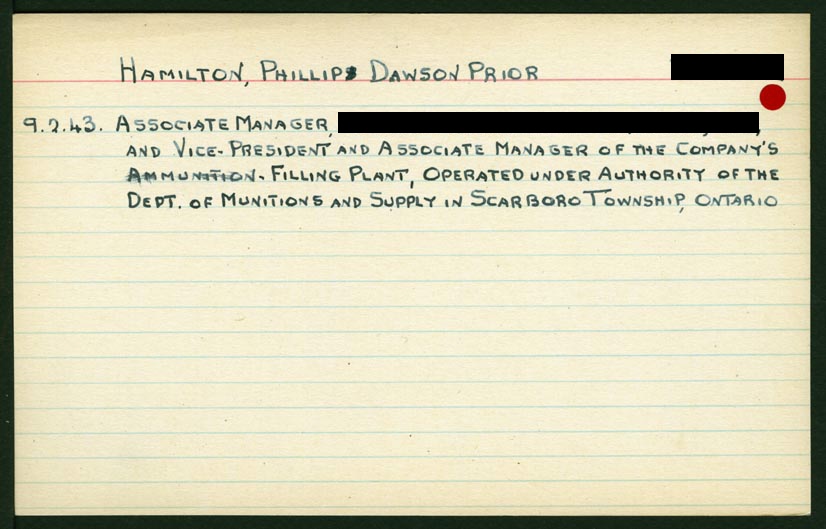 HAMILTON, PHILLIP DAWSON PRIOR
9.2.43. ASSOCIATE MANAGER,
AND VICE-PRESIDENT AND ASSOCIATE MANAGER OF THE COMPANY'S
AMMUNITION-FILLING PLANT, OPERATED UNDER AUTHORITY OF THE
DEPT. OF MUNITIONS AND SUPPLY IN SCARBORO TOWNSHIP, ONTARIO